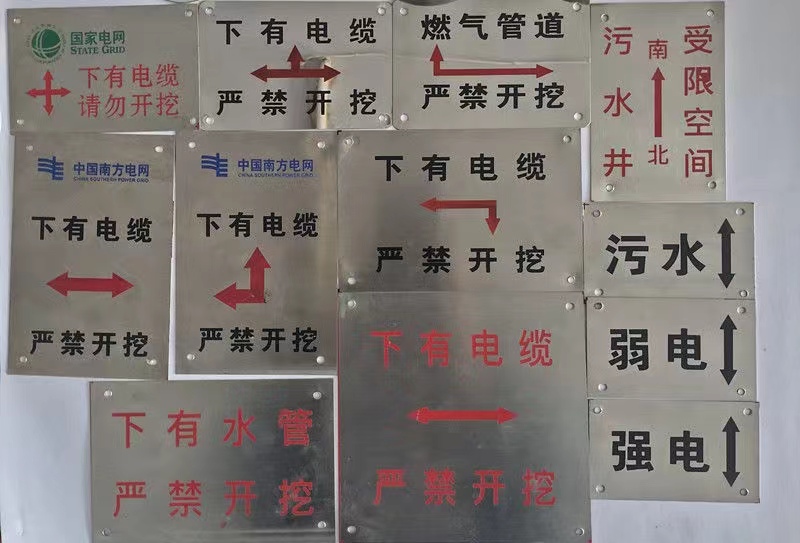 国家电网
STATE GRID
下有电缆
请勿开挖
下有电缆
严禁开挖
燃气管道
严禁开挖
污水井
南
北
受限空间
中国南方电网
CHINA SOUTHERN POWER GRID
下有电缆
严禁开挖
中国南方电网
CHINA SOUTHERN POWER GRID
下有电缆
严禁开挖
下有电缆
严禁开挖
污水
弱电
强电
下有水管
严禁开挖
下有电缆
严禁开挖